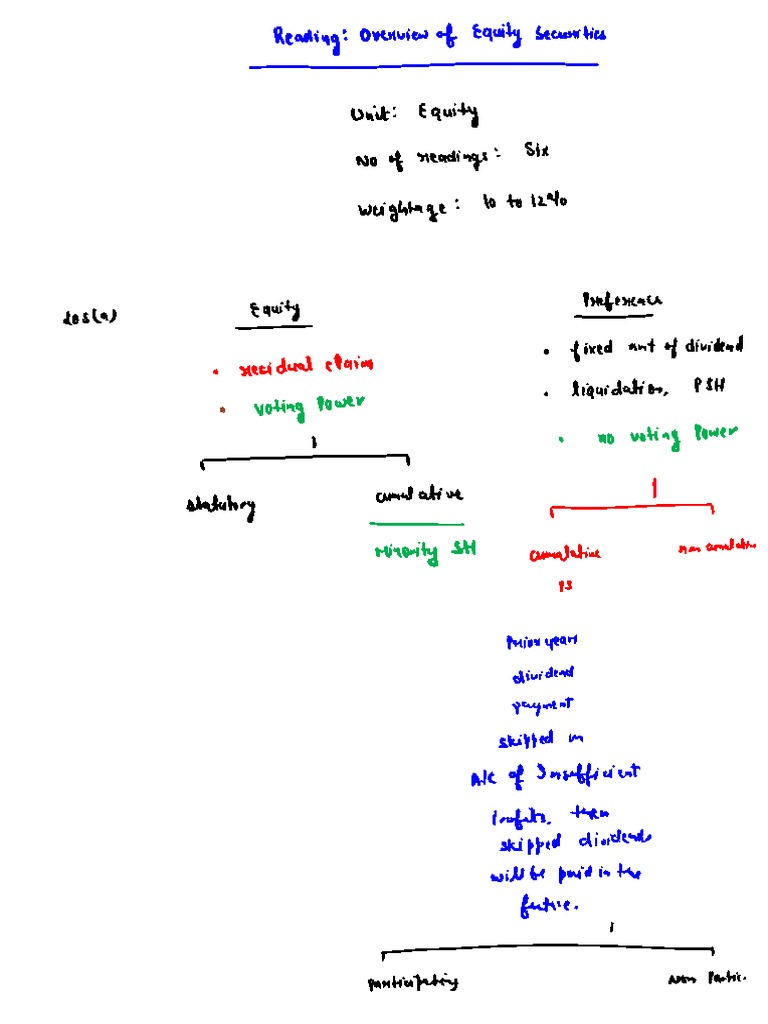 Reading: Overview of Equity Securities
Unit: Equity
No of readings: Six
Weightage: 10 to 12%
LOS(a)
Equity
• residual claim
• Voting Power
Statutory
cumulative
Minority SH
Preference
• fixed amt of dividend
• liquidation, PSH
• no voting Power
cumulative
PS
non cumulative
Prior years
dividend
payment
skipped in
A/c of Insufficient
Profits, then
skipped dividends
will be paid in the
future.
participating
Non Partic.